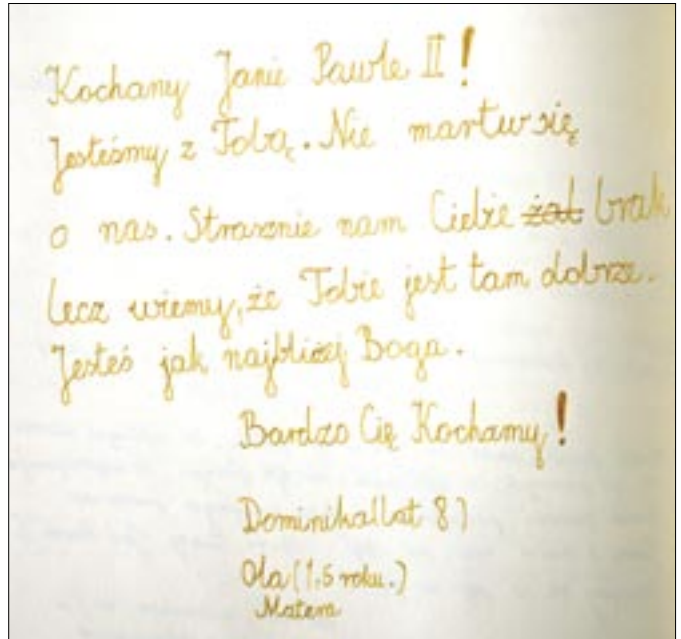 Kochany Janie Pawle II!
Jesteśmy z Tobą. Nie martw się
o nas. Strasznie nam Ciebie żal brak
lecz wiemy, że Tobie jest tam dobrze.
Jesteś jak najbliżej Boga.
Bardzo Cię Kochamy!
Dominika(lat 8)
Ola (1,5 roku.)